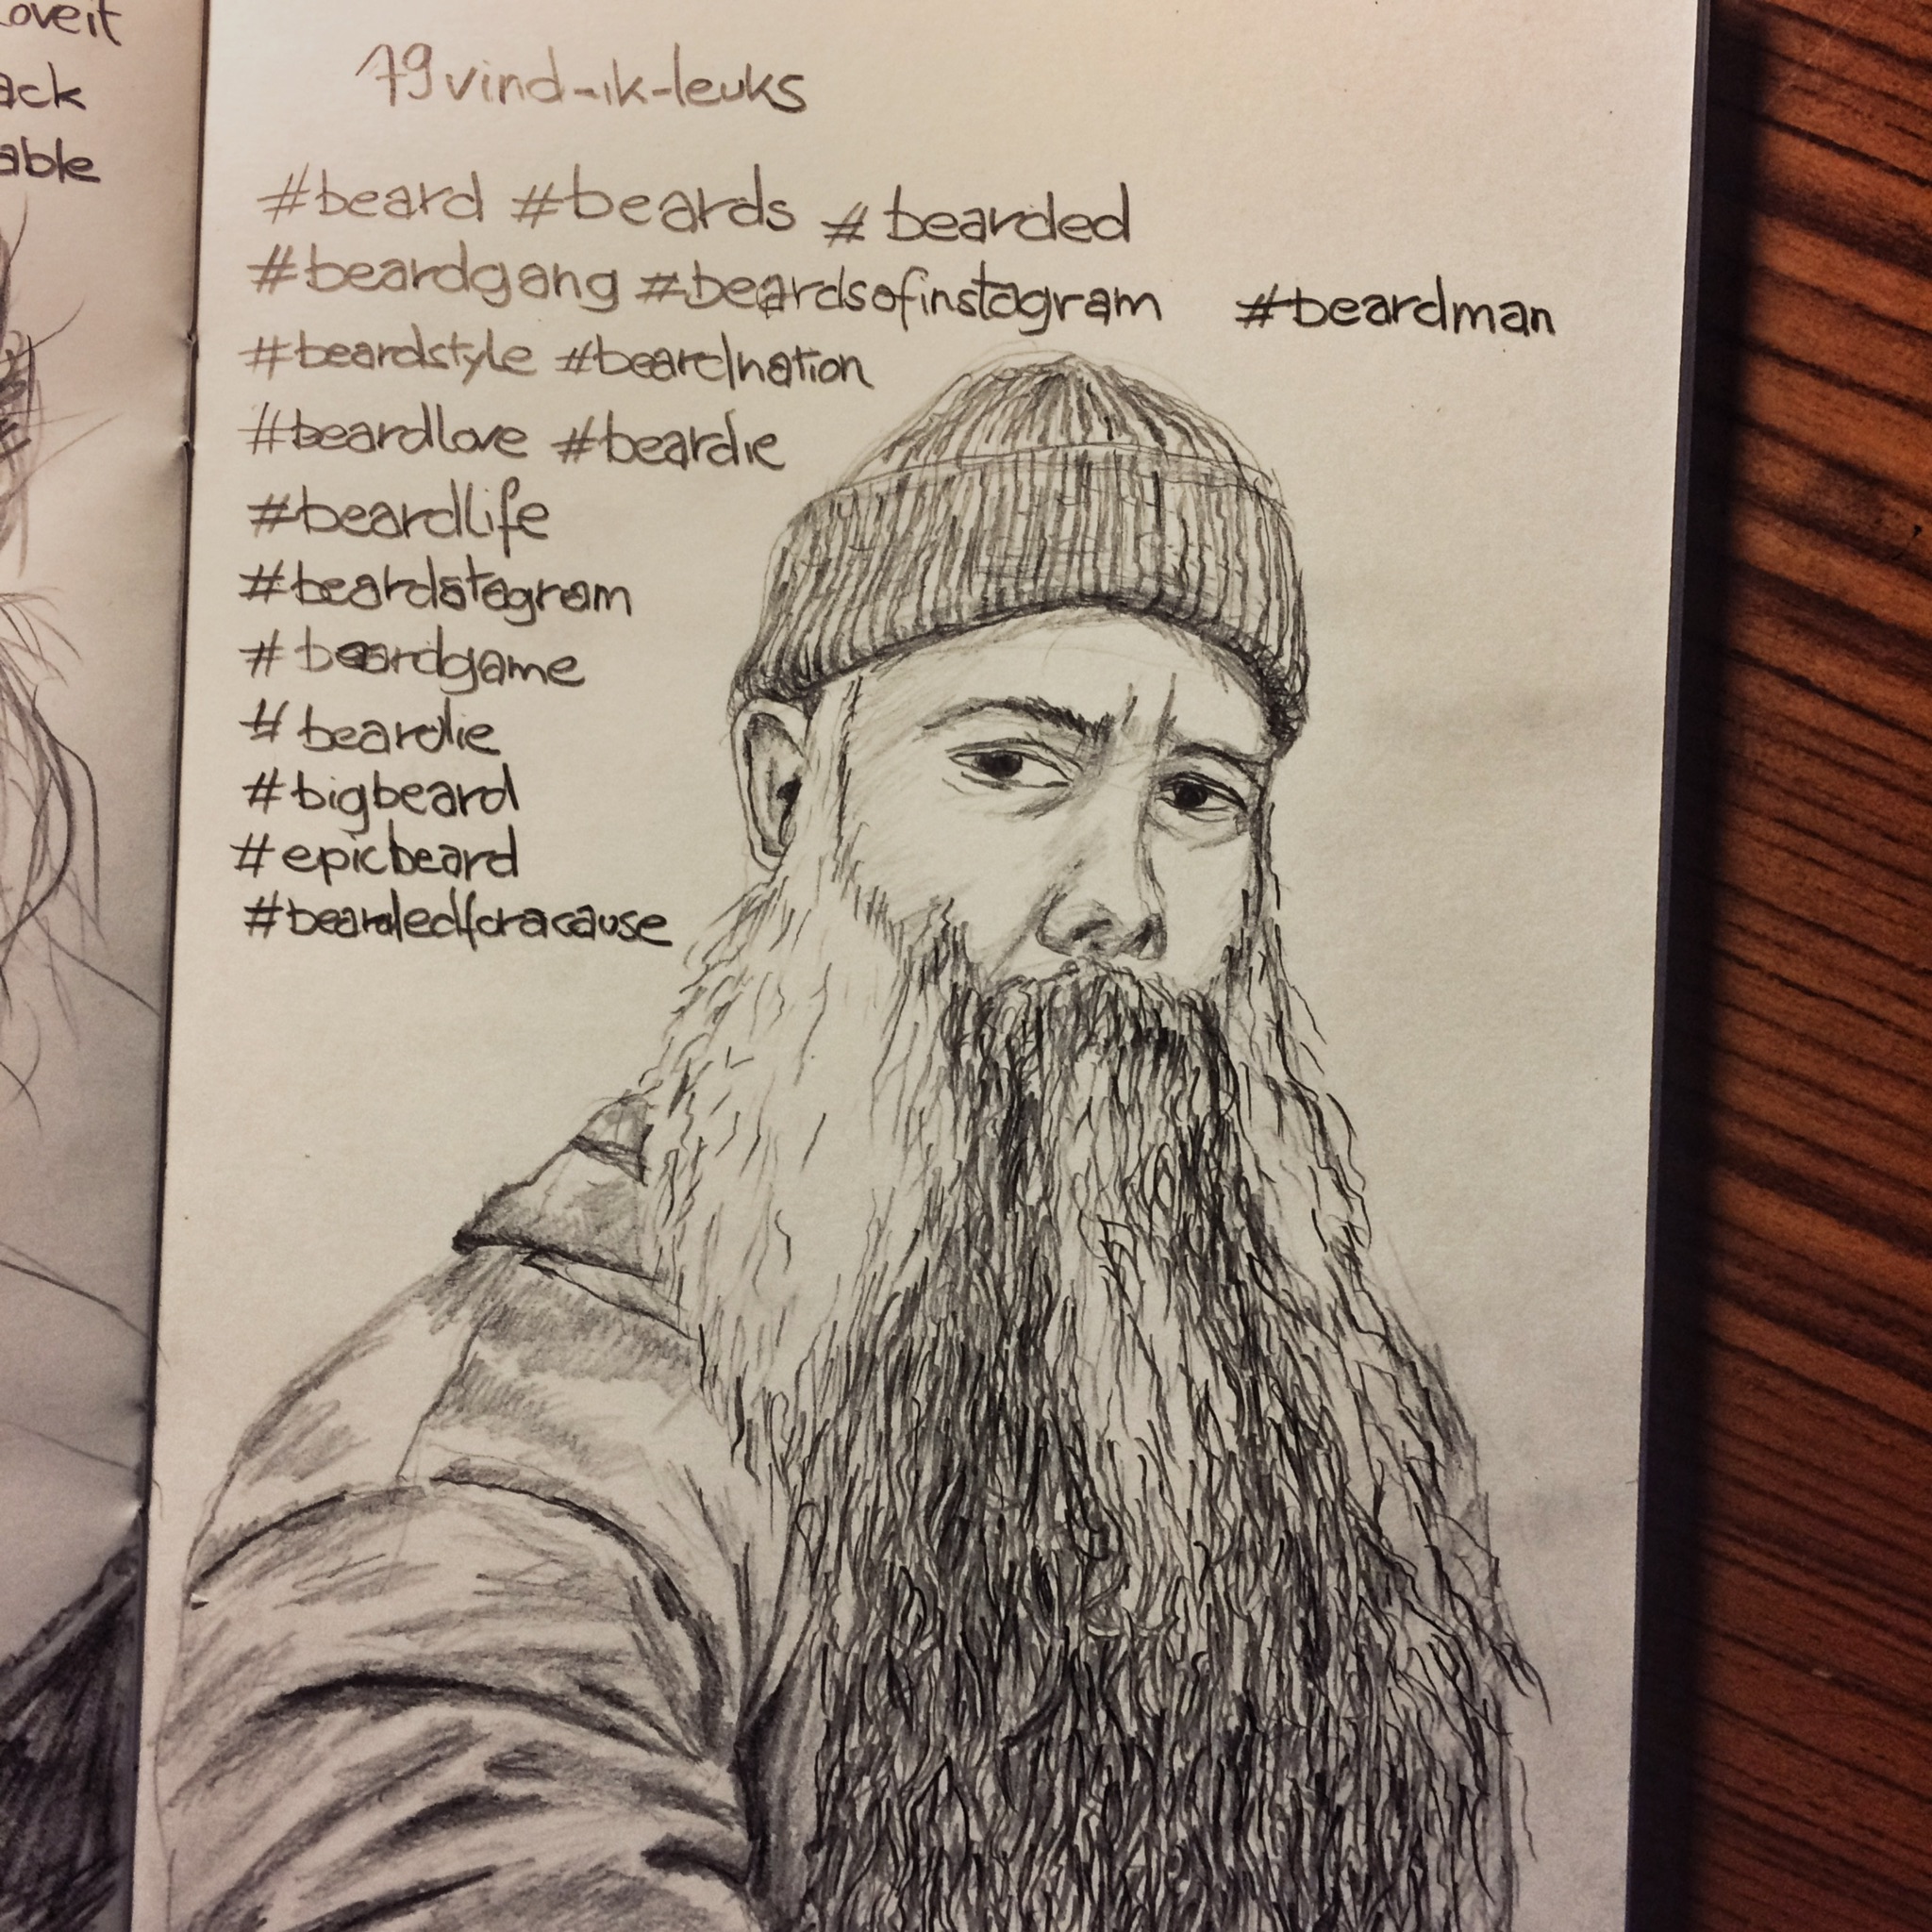 loveit
ack
able
79 vind-ik-leuks
#beard #beards # bearded
#beardgang #beardsofinstagram #beardman
#beardstyle #beardnation
#beardlove #beardie
#beardlife
#beardstagram
# beardgame
# beardie
# bigbeard
# epicbeard
#beardedforacause